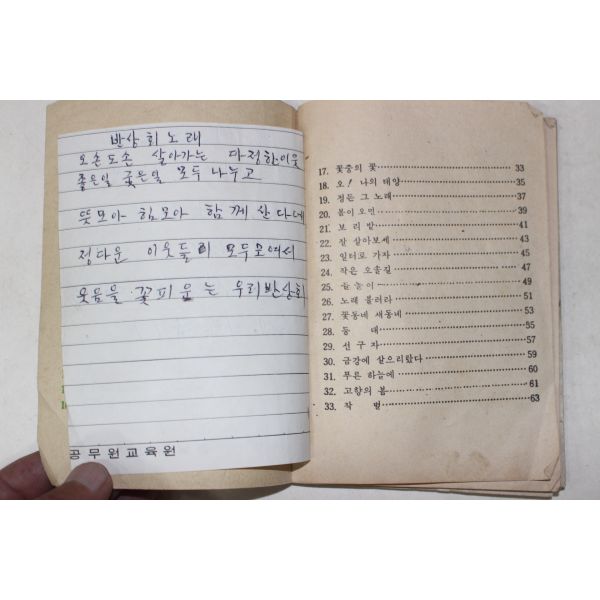 반상회노래
오손도손 살아가는 다정한이웃
좋은일 궂은일 모두 나누고
뜻모아 힘모아 함께 산다네
정다운 이웃들이 모두모여서
웃음을 꽃피우는 우리반상회
공무원교육원
17. 꽃중의 꽃 33
18. 오! 나의 태양 35
19. 정든 그 노래 37
20. 봄이 오면 39
21. 보리밭 41
22. 잘 살아보세 43
23. 일터로 가자 45
24. 작은 오솔길 47
25. 들놀이 49
26. 노래 불러라 51
27. 꽃동네 새동네 53
28. 등 대 55
29. 선구자 57
30. 금강에 살으리랐다 59
31. 푸른 하늘에 60
32. 고향의 봄 61
33. 작 별 63